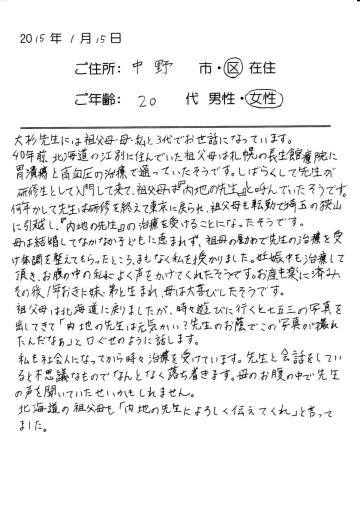 2015年1月15日
ご住所: 中野 市・区 在住
ご年齢: 20 代 男性・女性
大杉先生には祖父母・母・私と3代でお世話になっています。
40年前、北海道の江別に住んでいた祖父母は札幌の長生館療院に
胃潰瘍と高血圧の治療で通っていたそうです。しばらくして先生が
研修生として入門して来て、祖父母は『内地の先生』と呼んでいたそうです。
何年かして先生は研修を終えて東京に戻られ、祖父母も転勤で埼玉の狭山
に引越し、『内地の先生』の治療を受けることになったそうです。
母は結婚してなかなか子どもに恵まれず、祖母の勧めで先生の治療を受
け体調を整えてもらったところ、まもなく私を授かりました。妊娠中も治療して
頂き、お腹の中の私によく声をかけてくれたそうです。お産も楽に済み、
その後、1年おきに妹・弟と生まれ、母は大喜びしたそうです。
祖父母は北海道に戻りましたが、時々遊びに行くと七五三の写真を
出してきて「内地の先生は元気かい？先生のお蔭でこの写真が撮れ
たんだなぁ」と口ぐせのように話します。
私も社会人になってから時々治療を受けています。先生と会話をしてい
ると不思議なものでなんとなく落ち着きます。母のお腹の中で先生
の声を聞いていたせいかもしれません。
北海道の祖父母も「内地の先生によろしく伝えてくれ」と言って
ました。